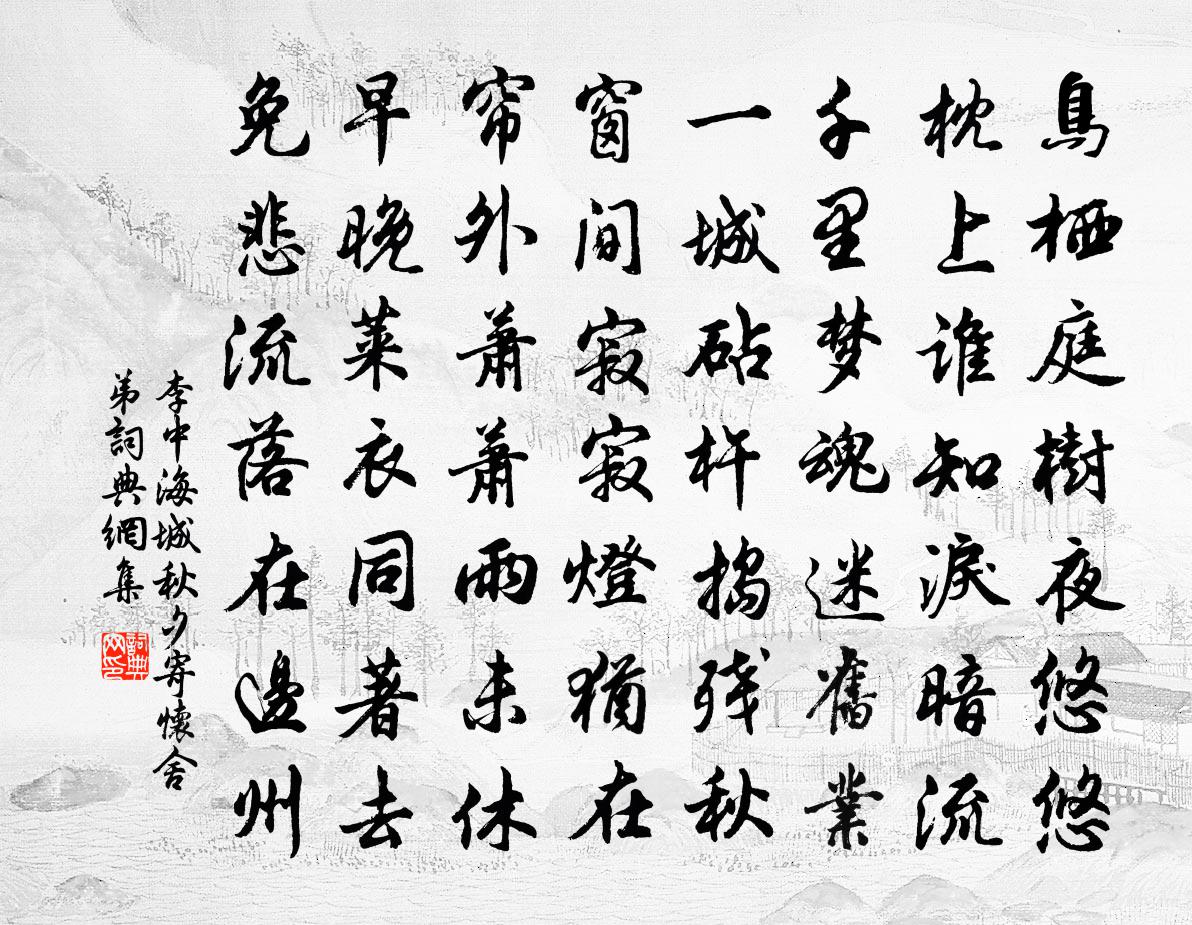 鳥栖庭樹夜悠悠
枕上谁知淚暗流
千里梦魂迷舊業
一城砧杵搗残秋
窗间寂寂燈猶在
帘外萧萧雨未休
早晚莱衣同著去
免悲流落在邊州
李中海城秋夕寄懷舍
弟詞典網集
詞典
网印